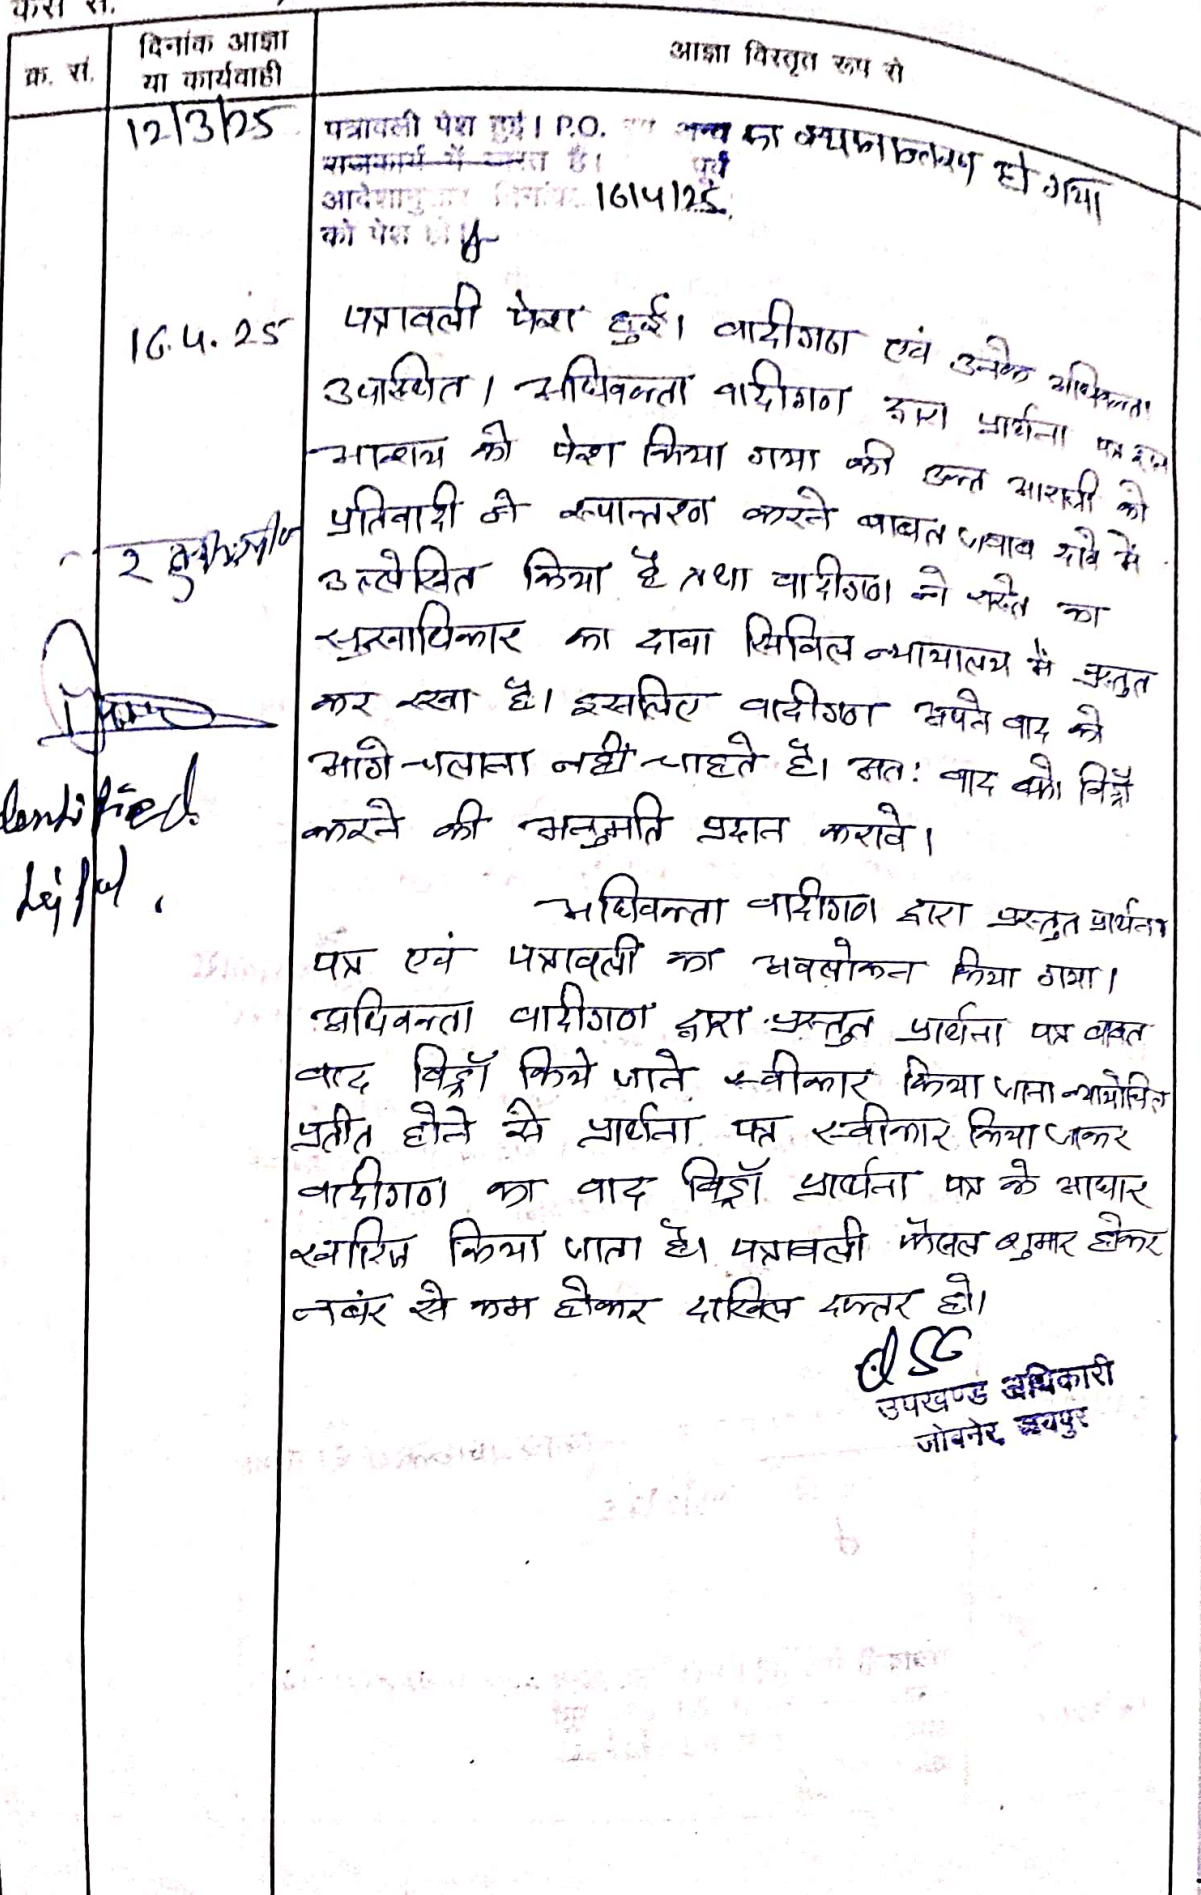 केस सं.
क्र. सं.
दिनांक आज्ञा
या कार्यवाही
आज्ञा विस्तृत रूप से
12/3/25
पत्रावली पेश हुई। P.O. का हो गया
राजकार्य में व्यस्त है। पूर्व
आदेशानुसार दिनांक 16/4/25
को पेश हो।
16.4.25
पत्रावली पेश हुई। वादीगण एवं उनके अधिवक्ता
उपस्थित। अधिवक्ता वादीगण द्वारा प्रार्थना पत्र इस
आशय को पेश किया गया की उक्त आराजी को
प्रतिवादी ने रूपान्तरण करने बाबत जवाब दावे में
उल्लेखित किया है तथा वादीगण ने रास्ते का
सुखाधिकार का दावा सिविल न्यायालय में प्रस्तुत
कर रखा है। इसलिए वादीगण अपने वाद को
आगे चलाना नहीं चाहते है। अतः वाद को विड्रॉ
करने की अनुमति प्रदान करावे।
Identified
अधिवक्ता वादीगण द्वारा प्रस्तुत प्रार्थना
पत्र एवं पत्रावली का अवलोकन किया गया।
अधिवक्ता वादीगण द्वारा प्रस्तुत प्रार्थना पत्र बाबत
वाद विड्रॉ किये जाने स्वीकार किया जाना न्यायोचित
प्रतीत होने से प्रार्थना पत्र स्वीकार किया जाकर
वादीगण का वाद विड्रॉ प्रार्थना पत्र के आधार
खारिज किया जाता है। पत्रावली फैसल शुमार होकर
नबंर से कम होकर दाखिल दफ्तर हो।
उपखण्ड अधिकारी
जोबनेर, जयपुर